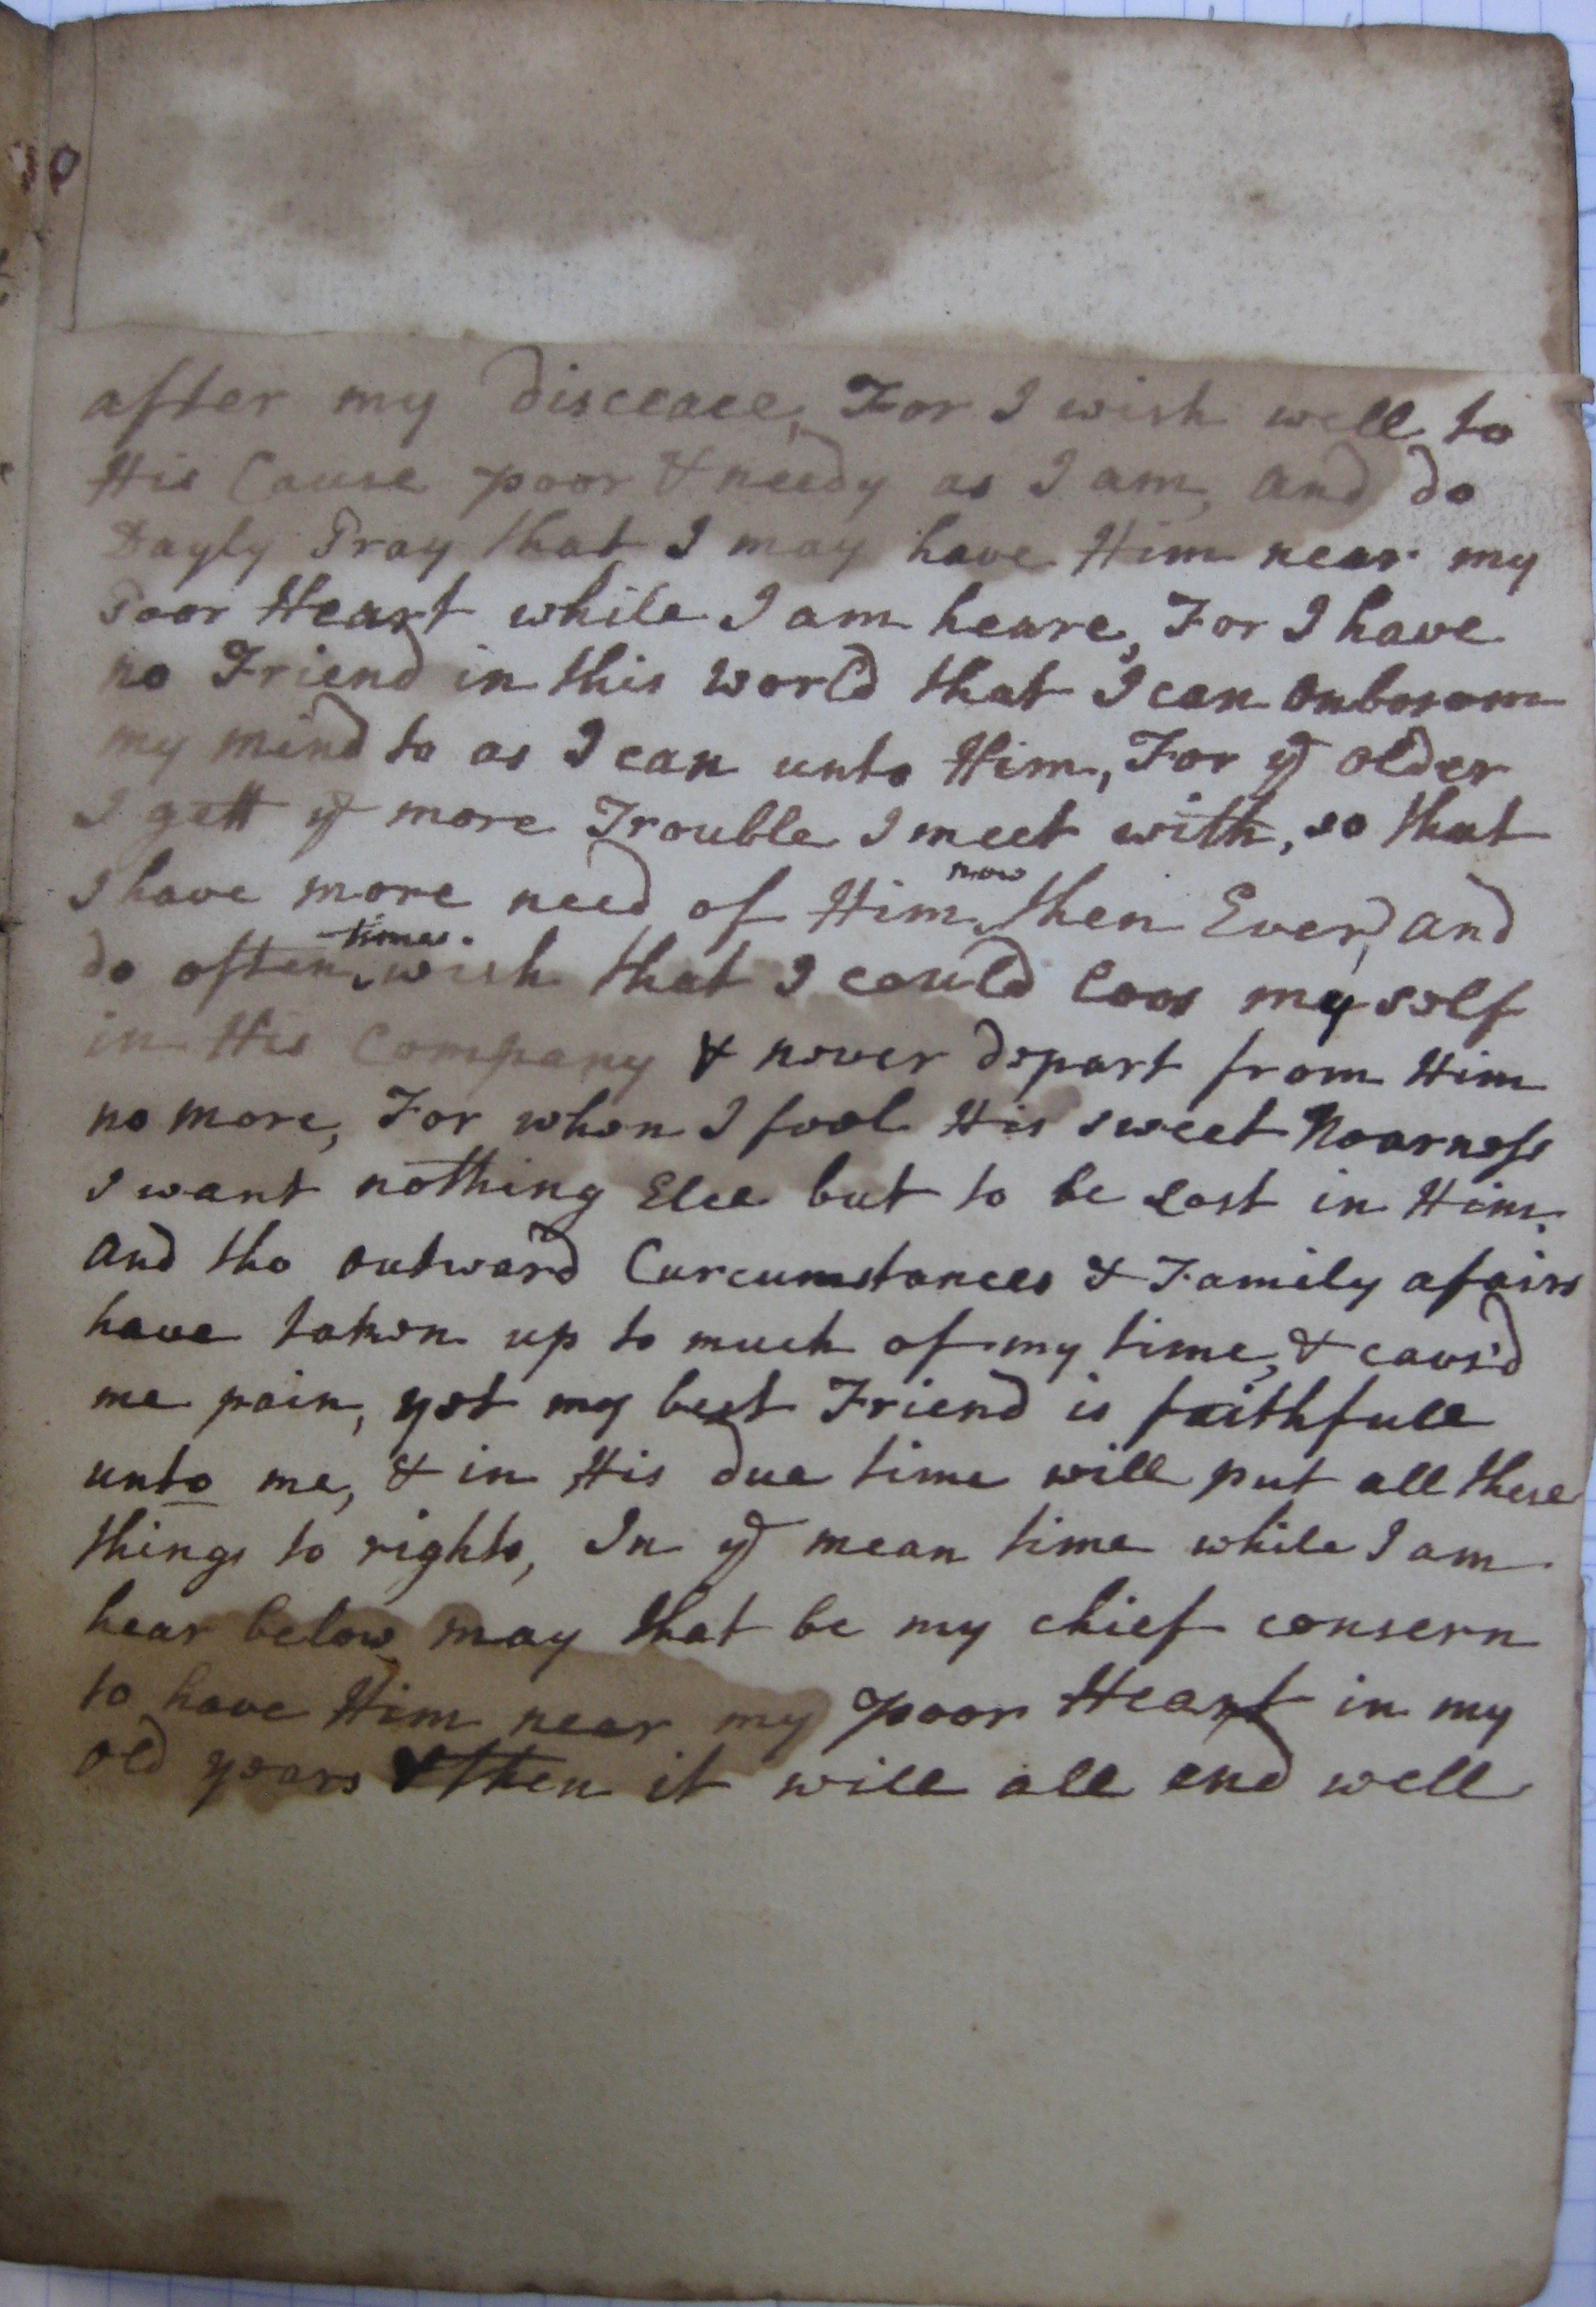 after my disceace, For I wish well to
His Cause poor & needy as I am, and do
Dayly Pray that I may have Him near my
Poor Heart while I am heare, For I have
no Friend in this World that I can onbosom
my mind to as I can unto Him, For ye older
I gett ye more Trouble I meet with, so that
I have more need of Him now then Ever, and
do often times wish that I could loos my self
in His Company & never depart from Him
no more, For when I feel His sweet Nearness
I want nothing Elce but to be Lost in Him.
and tho outward Curcumstances & Family afairs
have taken up to much of my time, & caus'd
me pain, yet my best Friend is faithfull
unto me, & in His due time will put all these
things to rights, In ye mean time while I am
hear below may that be my chief consern
to have Him near my poor Heart in my
old years & then it will all end well